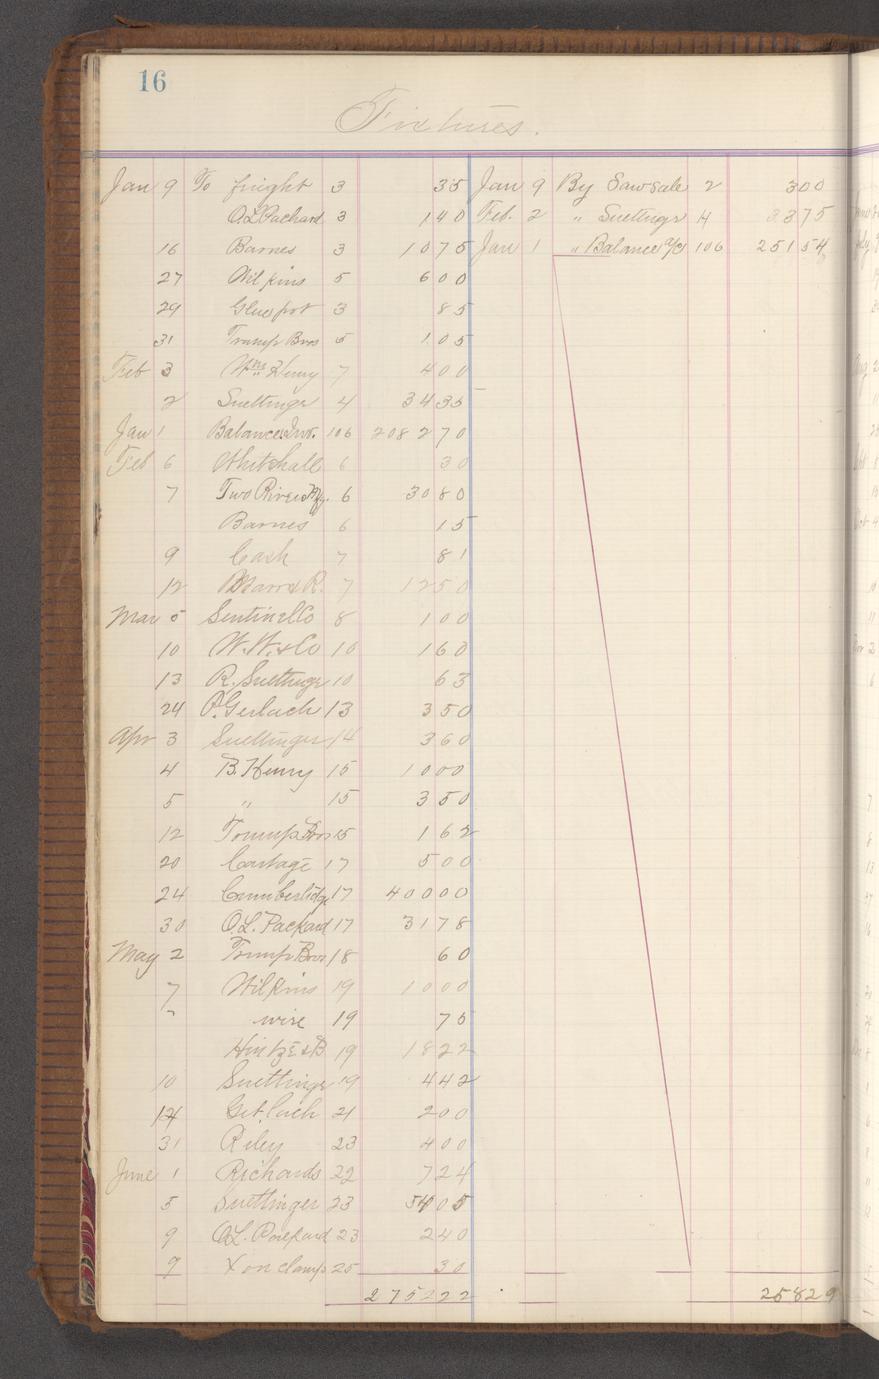 16
Fixtures.
Jan 9 To freight 3 35 Jan 9 By Saw sale 2 300
O.L. Packard 3 140 Feb. 2 " Suettinger 4 3375
16 Barnes 3 1075 Jan 1 " Balance a/c 106 25154
27 Wilkins 5 600
29 Glue pot 3 85
31 Tramp Bros 5 105
Feb 3 Wm Henry 7 400
2 Suettinger 4 3435
Jan 1 Balance Inv. 106 208270
Feb 6 Whitehall 6 30
7 Two Rivers Mfg. 6 3080
Barnes 6 15
9 Cash 7 81
12 R. 7 1250
Mar 5 Sentinel Co 8 100
10 W. W. & Co 10 160
13 R. Suettinger 10 63
24 P. Gerlach 13 350
Apr 3 Suettinger 14 360
4 B. Henry 15 1000
5 " 15 350
12 Trump Bros 15 162
20 Cartage 17 500
24 Cumberlidge 17 40000
30 O.L. Packard 17 3178
May 2 Trump Bros 18 60
7 Wilkins 19 1000
" wire 19 75
Hintze & B 19 1822
10 Suettinger 19 442
14 Gerlach 21 200
31 Riley 23 400
June 1 Richards 22 724
5 Suettinger 23 5405
9 O.L. Packard 23 240
9 X on clamp 25 30
275222 25829